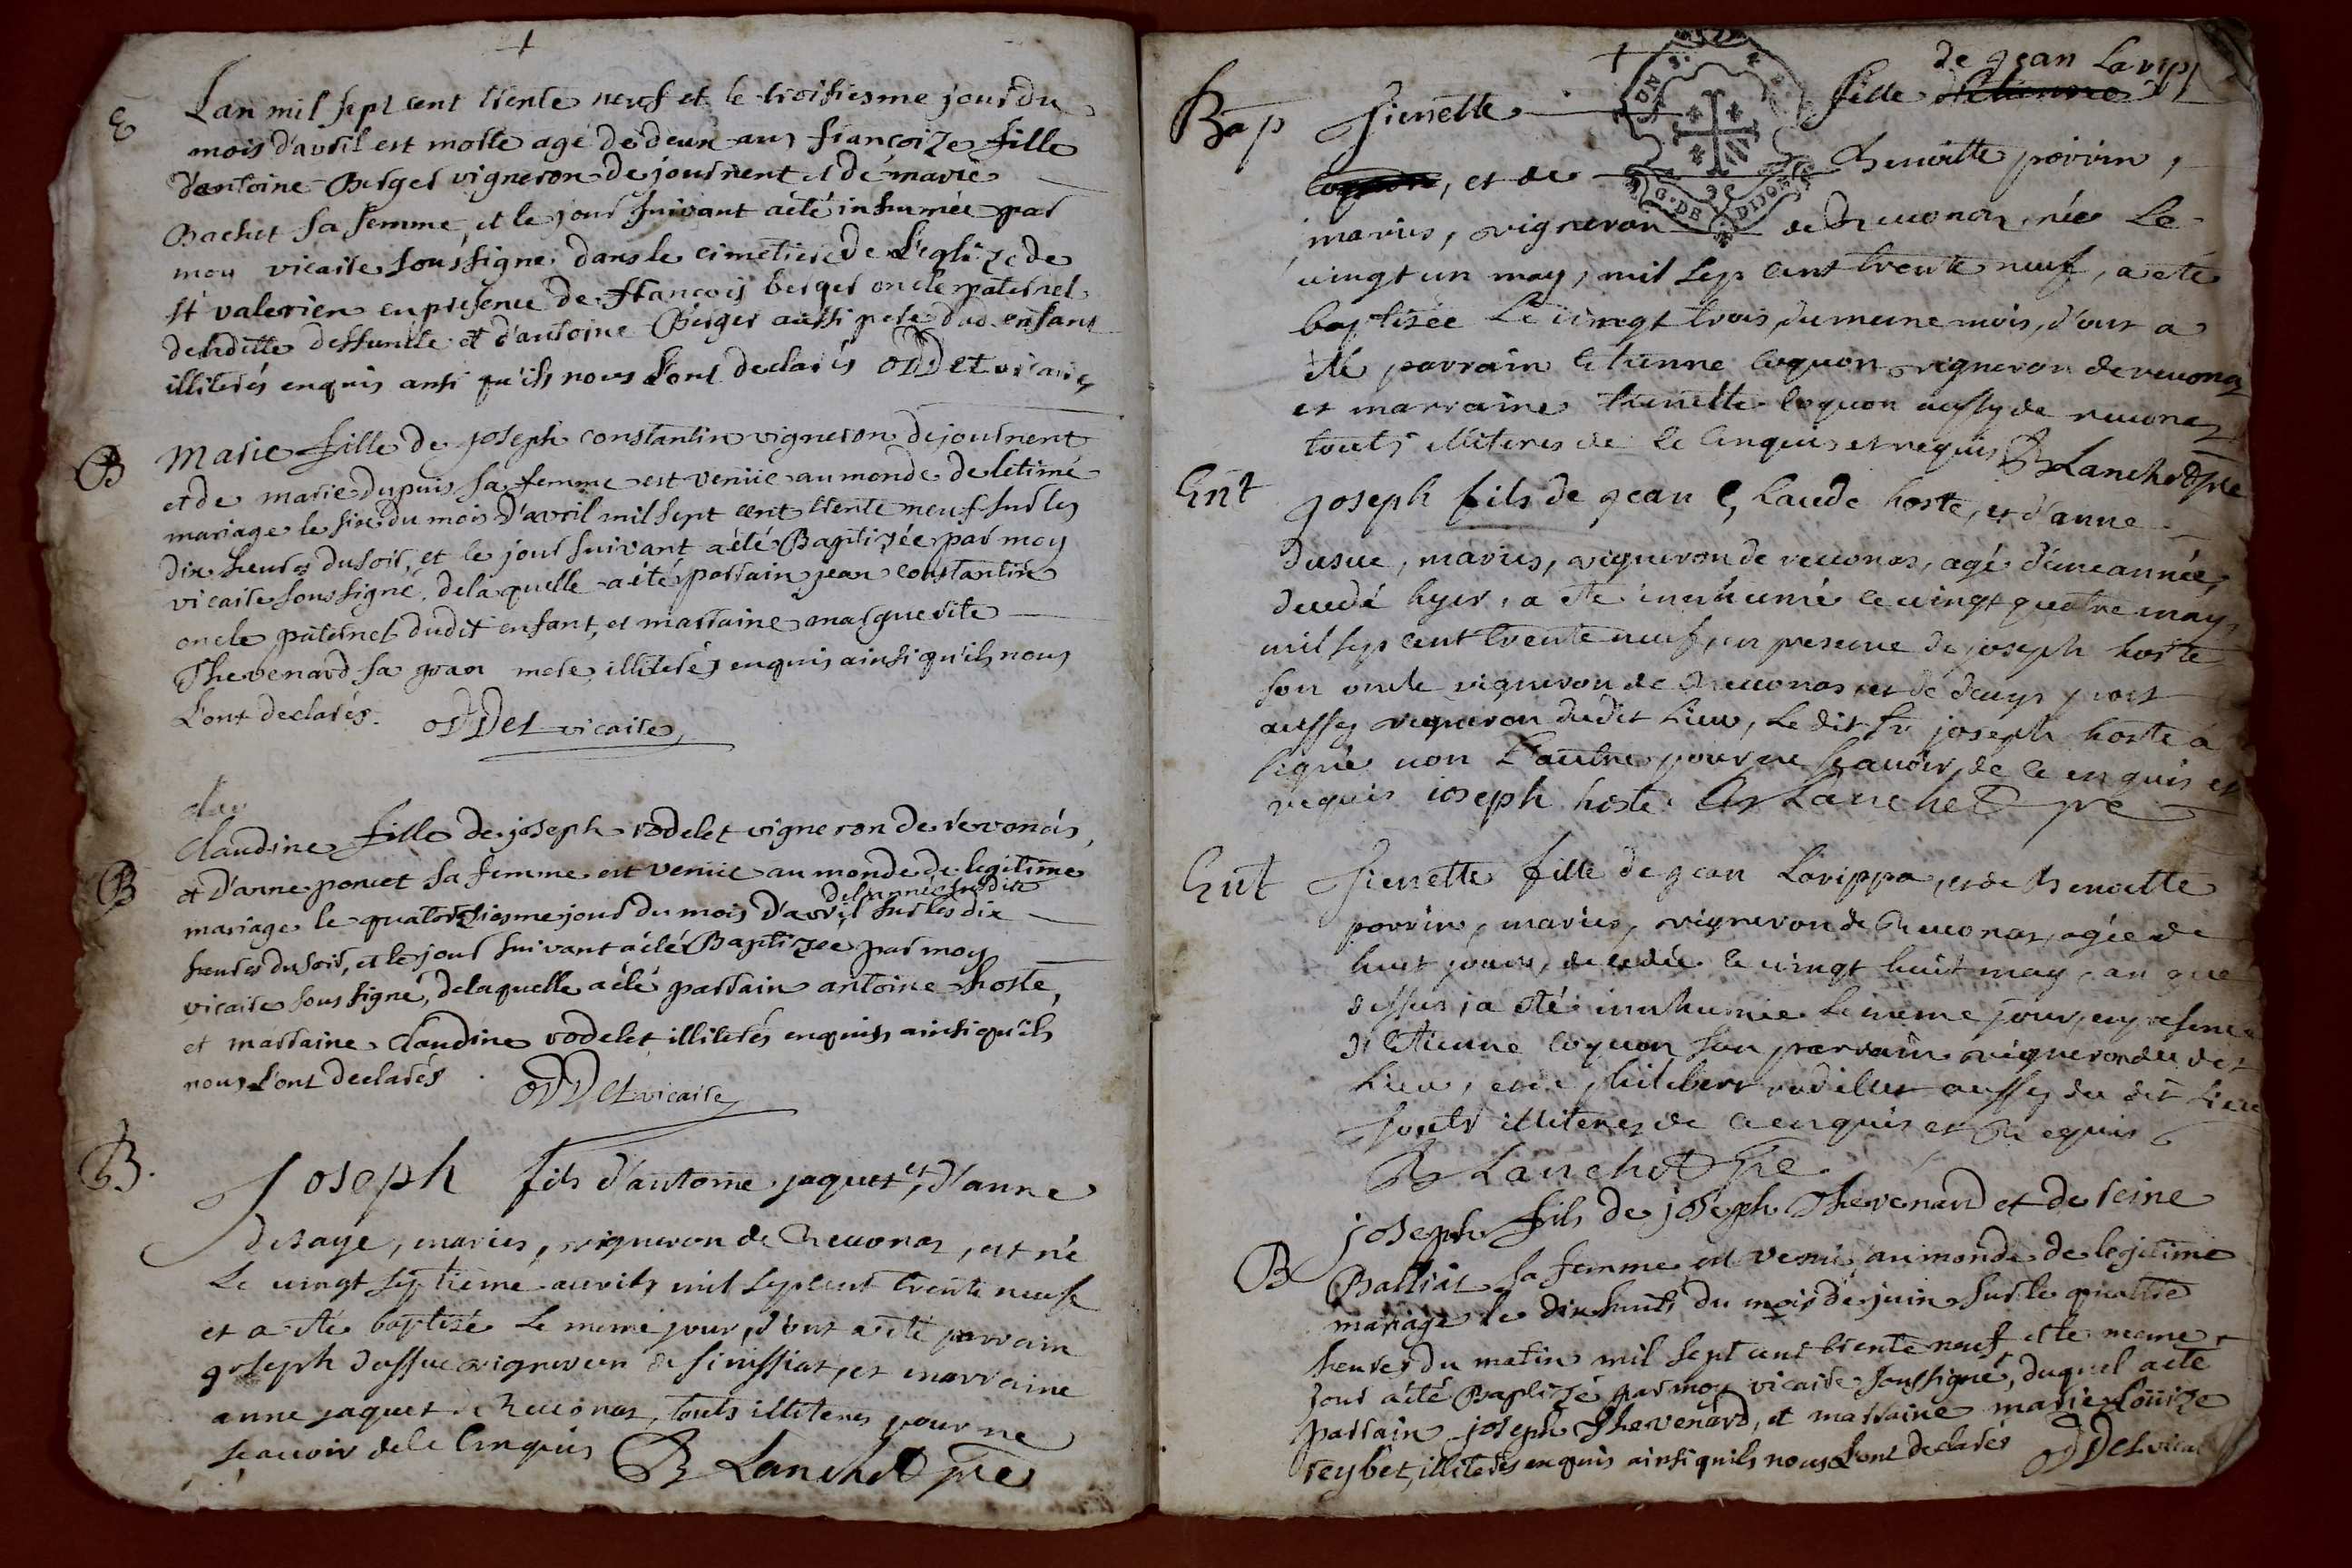 E
Lan mil sept cent trente neuf et le troisiesme jour du
mois d'avril est morte agé de deux ans françoize fille
d'antoine Berger vigneron de journent et de marie
Bachet sa femme, et le jour suivant a été inhumée par
moy vicaire soussigné dans le cimetiere de l'eglize de
st valerien en presence de françois berger oncle paternel
de laditte deffunte et d'antoine Berger aussi pere dud enfant
illiterés enquis ansi qu'ils nous l'ont declarés ODDet vicaire
B
Marie fille de joseph constantin vigneron de journent
et de marie dupuis sa femme est venüe au monde de letime
mariage le six du mois d'avril mil sept cent trente neuf sur les
dix heures du soir, et le jour suivant a été Baptizée par moy
vicaire soussigné, de laquelle a été parrain jean constantin
oncle paternel dudit enfant, et marraine marguerite
Thevenard sa gran mere illiterés enquis ainsi qu'ils nous
l'ont declarés. ODDet vicaire
clau
B
Claudine fille de joseph rodelet vigneron de revonas,
et d'anne poncet sa femme est venüe au monde de legitime
de l'année susdite
mariage le quatorziesme jour du mois d'avril sur les dix
heures du soir, et le jour suivant a été Baptizée par moy
vicaire soussigné, de laquelle a été parrain antoine hoste,
et marraine claudine rodelet illiterés enquis ainsi qu'ils
nous l'ont declarés. ODDet vicaire
B.
Joseph fils d'antoine jaquet, et d'anne
desaye, mariés, vigneron de Revonas, est né
le vingt septieme avril mil sept cent trente neuf
et a été baptizé le meme jour, d'ont a été parrain
joseph dussue vigneron de simissiat, et marraine
anne jaquet de Revonas, touts illiteres pour ne
scavoir de ce Enquis B Lanchet pre
de jean Lavip
Bap Pierrette fille
et de Benoitte porrin,
G. DE DIJON
mariés, vigneron de Revonas, née le
vingt un may, mil sep cent trente neuf, a eté
baptisée le vingt trois du meme mois, d'ont a
été parrain etienne coquon vigneron de revonas
et marraine Pierrette coquon aussy de revonas
touts illiteres de ce Enquis et requis B Lanchet pre
Ent
joseph fils de jean Claude hoste, et d'anne
dusue, mariés, vigneron de revonas, agé d'une année,
decedé hyer, a eté inhumé ce vingt quatre may
mil sep cent trente neuf, en presence de joseph hoste
son oncle vigneron de Revonas, et de
aussy vigneron dudit lieu, le dit joseph hoste a
signé non l'autre pour ne scavoir, de ce enquis et
requis ioseph hoste. B Lanchet pre
Ent
Pierrette fille de jean Lavippa, et de Benoitte
porrin, mariés, vigneron de Revonas, agée de
huit jours, decedée le vingt huit may, an que
dessus, a été innhumée le meme jour, en presence
d'Etienne coquon son parrain vigneron du dit
lieu, et de philibert rodillet aussy du dit lieu
touts illiteres de ce enquis et Requis
B Lanchet Pre
B
joseph fils de joseph Thevenard et de reine
Balliat sa femme est venu au monde de legitime
mariage le dix huits du mois de juin sur le quattre
heures du matin mil sept cent trente neuf et le meme
jour a été Baptizé par moy vicaire soussigné, duquel a été
parrain joseph Thevenard, et marraine marie Loüize
reybet, illiterés enquis ainsi qu'ils nous l'ont declarés ODDet vicai